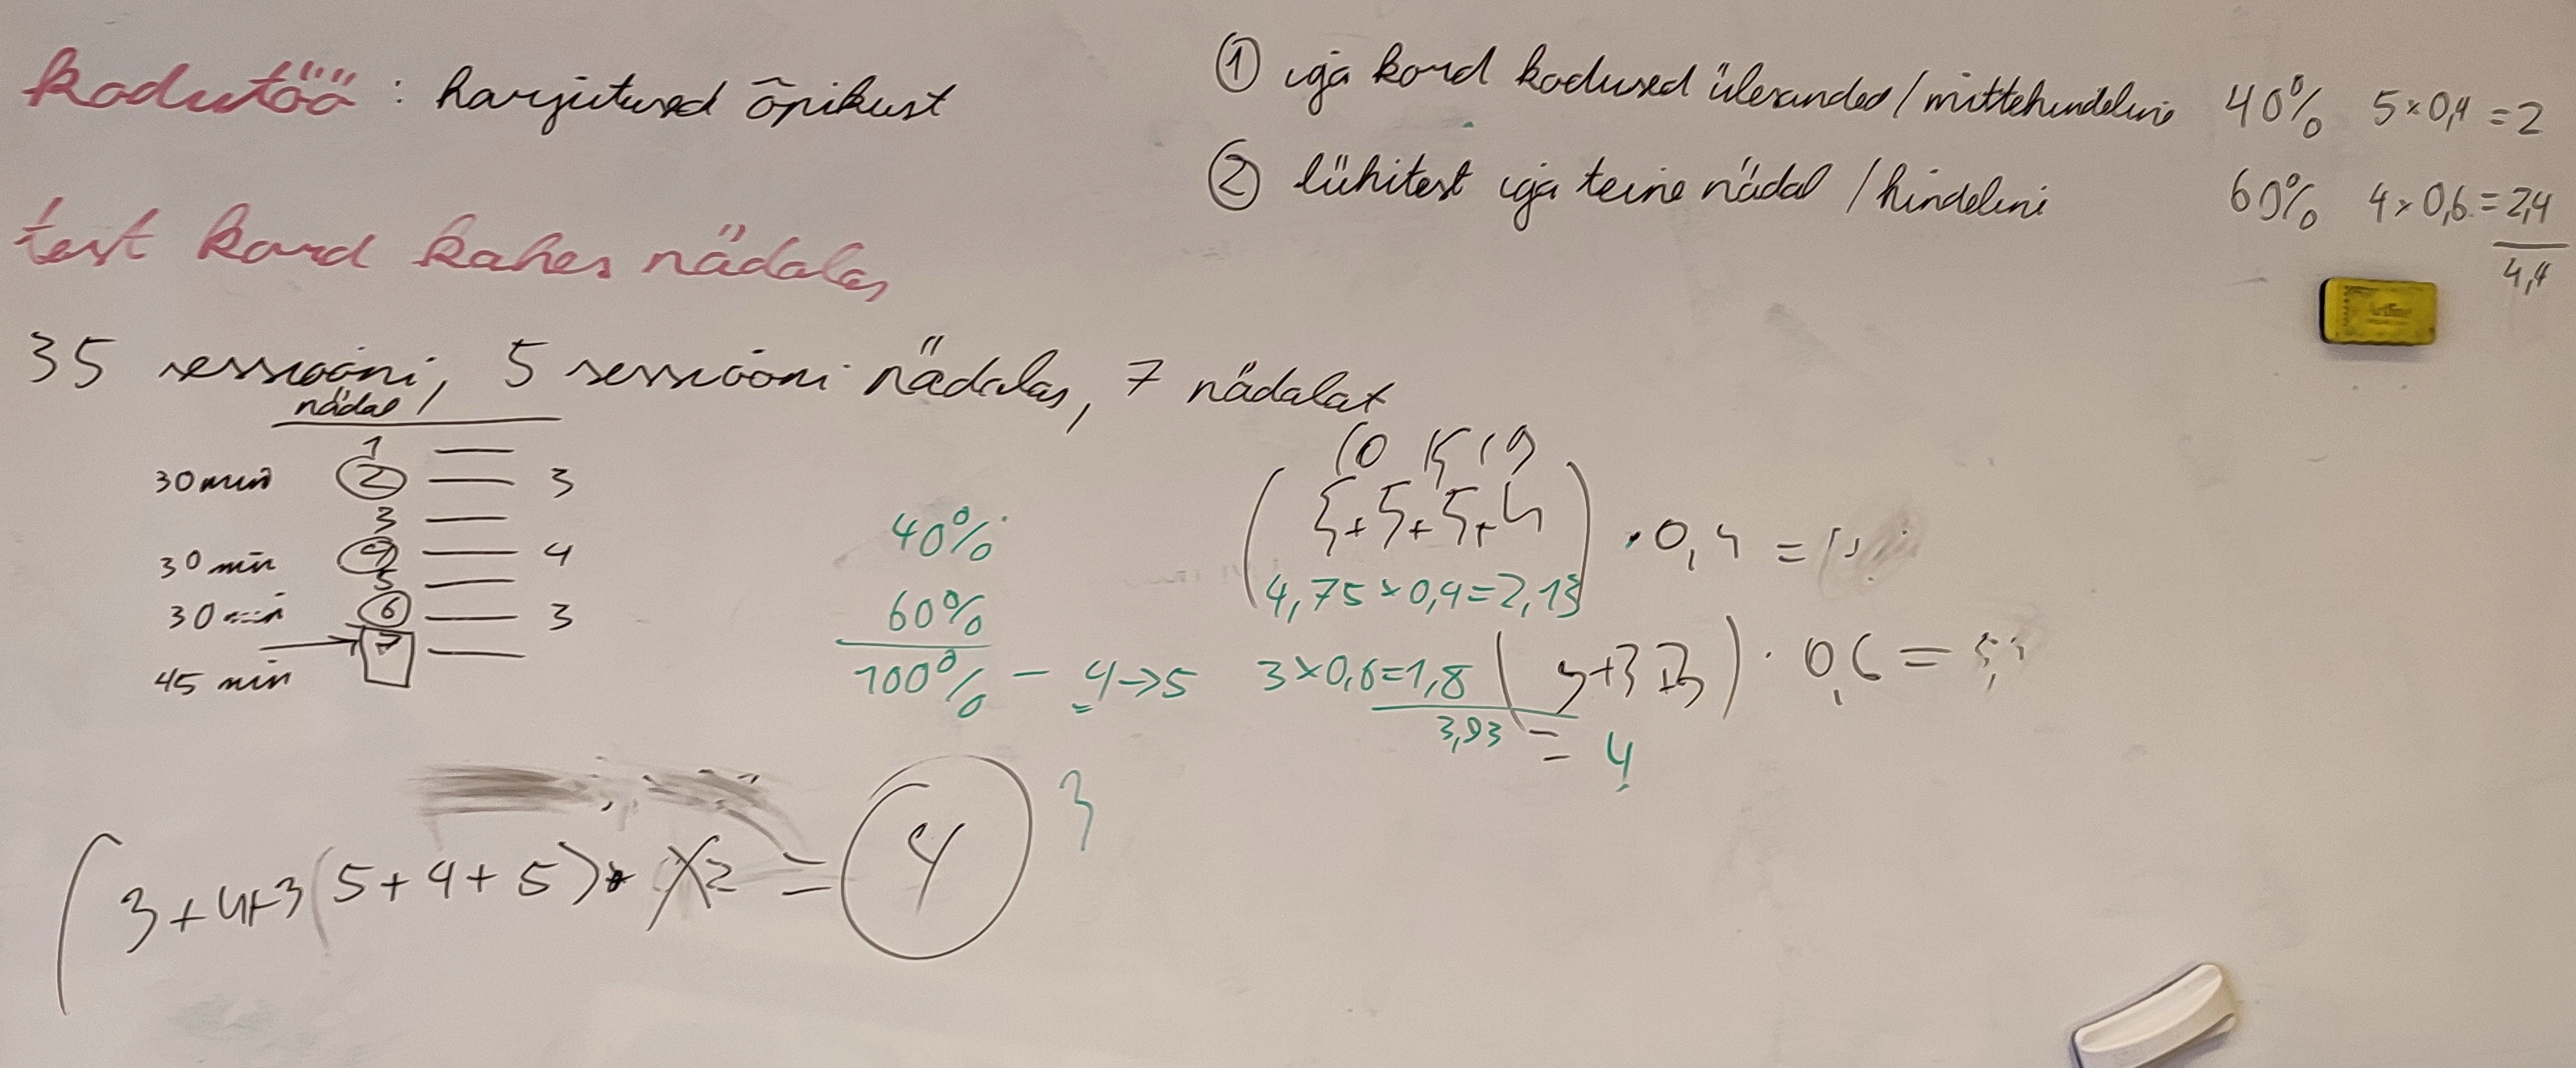 kodutöö : harjutused õpikust
test kord kahes nädalas
① iga kord kodused ülesanded / mittehindeline 40% 5 × 0,4 = 2
② lühitest iga teine nädal / hindeline 60% 4 × 0,6 = 2,4
4,4
35 sessiooni, 5 sessiooni nädalas, 7 nädalat
nädal
1
30 min ② 3
3
30 min ④ 4
5
30 min ⑥ 3
45 min 7
40%
60%
100% – 4 → 5
10 15 19
(5+5+5+4) · 0,4 =
4,75 × 0,4 = 2,13
3 × 0,6 = 1,8 · 0,6 =
3,93 = 4
3
(3+4+3(5+4+5) · 2 = 4